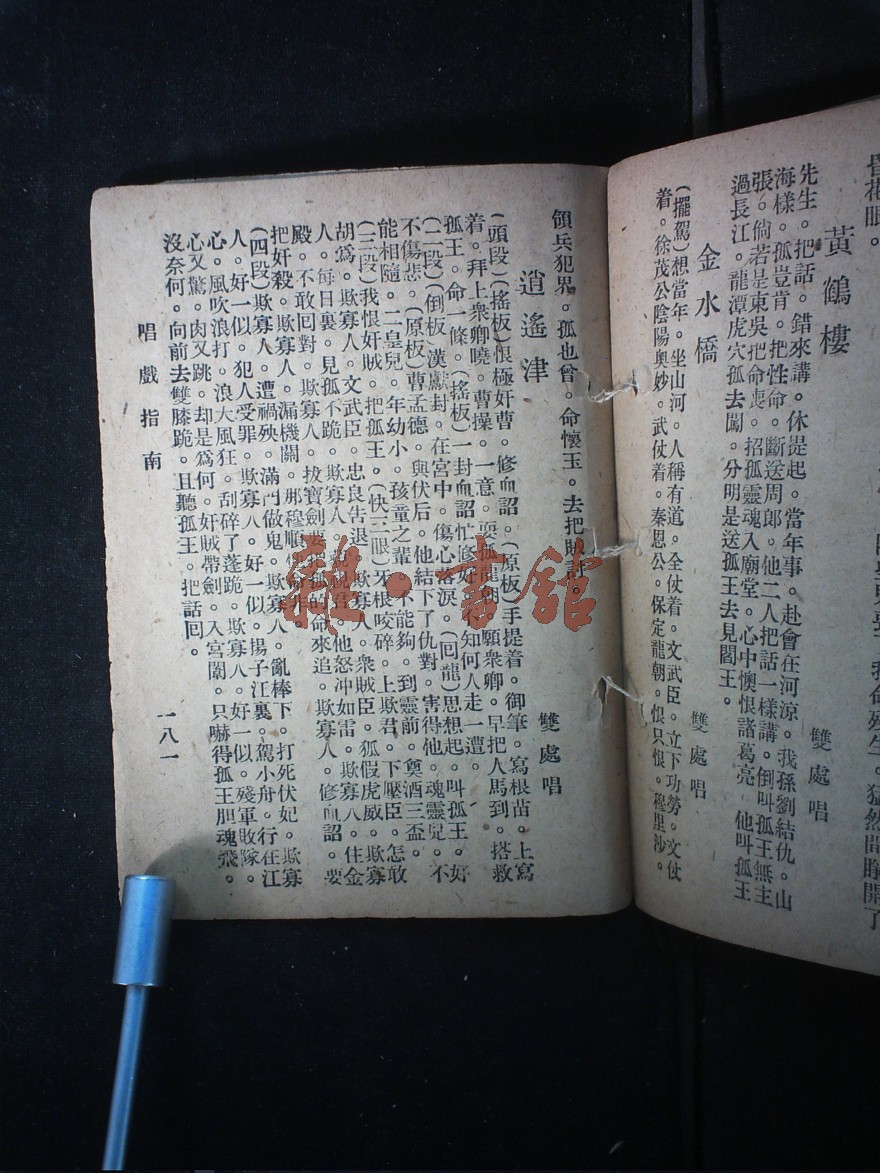 疊花眼。
猛然間睜開了
黃鶴樓
雙處唱
先生。把話。錯來講。休提起。當年事。赴會在河涼。我孫劉結仇。山
海樣。孤豈肯。把性命。斷送周郎。他二人把話一樣講。倒叫孤王無主
張。倘若是東吳把命喪。招孤靈魂入廟堂。心中懊恨諸葛亮 他叫孤王
過長江。龍潭虎穴孤去闖。分明是送孤王去見閻王。
金水橋
雙處唱
(擺駕)想當年。坐山河。人稱有道。全仗着。文武臣。立下功勞。文仗
着。徐茂公陰陽奧妙。武仗着。秦恩公。保定龍朝。恨只恨。穆里沙。
領兵犯界。孤也曾。命懷玉。去把賊討。
逍遙津
雙處唱
(頭段)(搖板)恨極奸曹。修血詔。(原板)手提着。御筆。寫根苗。上寫
着。拜上衆卿曉。曹操。一意。耍孤龍朝。願衆卿。早把人馬到。搭救
孤王。命一條。(搖板)一封血詔忙修好。不知何人走一遭。
(二段)(倒板)漢獻封。在宮中。傷心落淚。(回龍)思想起。叫孤王。好
不傷悲。(原板)曹孟德。與伏后。他結下了仇對。害得他。魂靈兒。不
能相隨。二皇兒。年幼小。孩童之輩。不能夠。到靈前。奠酒三盃。
(三段)我恨奸賊。把孤王。(快三眼)牙根咬碎。上欺君。下壓臣。怎敢
胡爲。欺寡人。文武臣。忠良告退。欺寡人。衆賊臣。狐假虎威。欺寡
人。每日裏。見孤不跪。欺寡人。視君。他怒冲如雷。欺寡人。住金
殿。不敢回對。欺寡人。拔寶劍要把孤的命來追。欺寡人。修血詔。要
把奸殺。欺寡人。漏機關。那穆順
(四段)欺寡人。遭禍殃。滿門做鬼。欺寡人。亂棒下。打死伏妃。欺寡
人。好一似。犯人受罪。欺寡人。好一似。揚子江裏。駕小舟。行在江
心。風吹浪打。浪大風狂。刮碎了蓬跪。欺寡人。好一似。殘軍敗隊。
心又驚。肉又跳。却是爲何。奸賊帶劍。入宮闈。只嚇得孤王胆魂飛。
沒奈何。向前去雙膝跪。且聽孤王。把話回。
唱戲指南
一八一
雜·書館